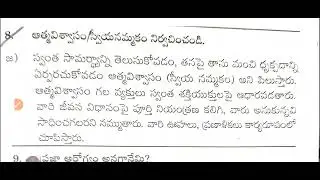 8. ఆత్మవిశ్వాసం/స్వీయనమ్మకం నిర్వచించండి.
జ) స్వంత సామర్థ్యాన్ని తెలుసుకోవడం, తనపై తాను మంచి దృక్పథాన్ని
ఏర్పరచుకోవడం ఆత్మవిశ్వాసం (స్వీయ నమ్మకం) అని పిలుస్తారు.
ఆత్మవిశ్వాసం గల వ్యక్తులు స్వంత శక్తియుక్తులపై ఆధారపడతారు.
వారి జీవన విధానంపై పూర్తి నియంత్రణ కలిగి, వారు అనుకున్నవి
సాధించగలరని నమ్ముతారు. వారి ఊహలు, ప్రణాళికలు కార్యరూపంలో
చూపిస్తారు.
9. ప్రజా ఆరోగ్యం అనగానేమి?